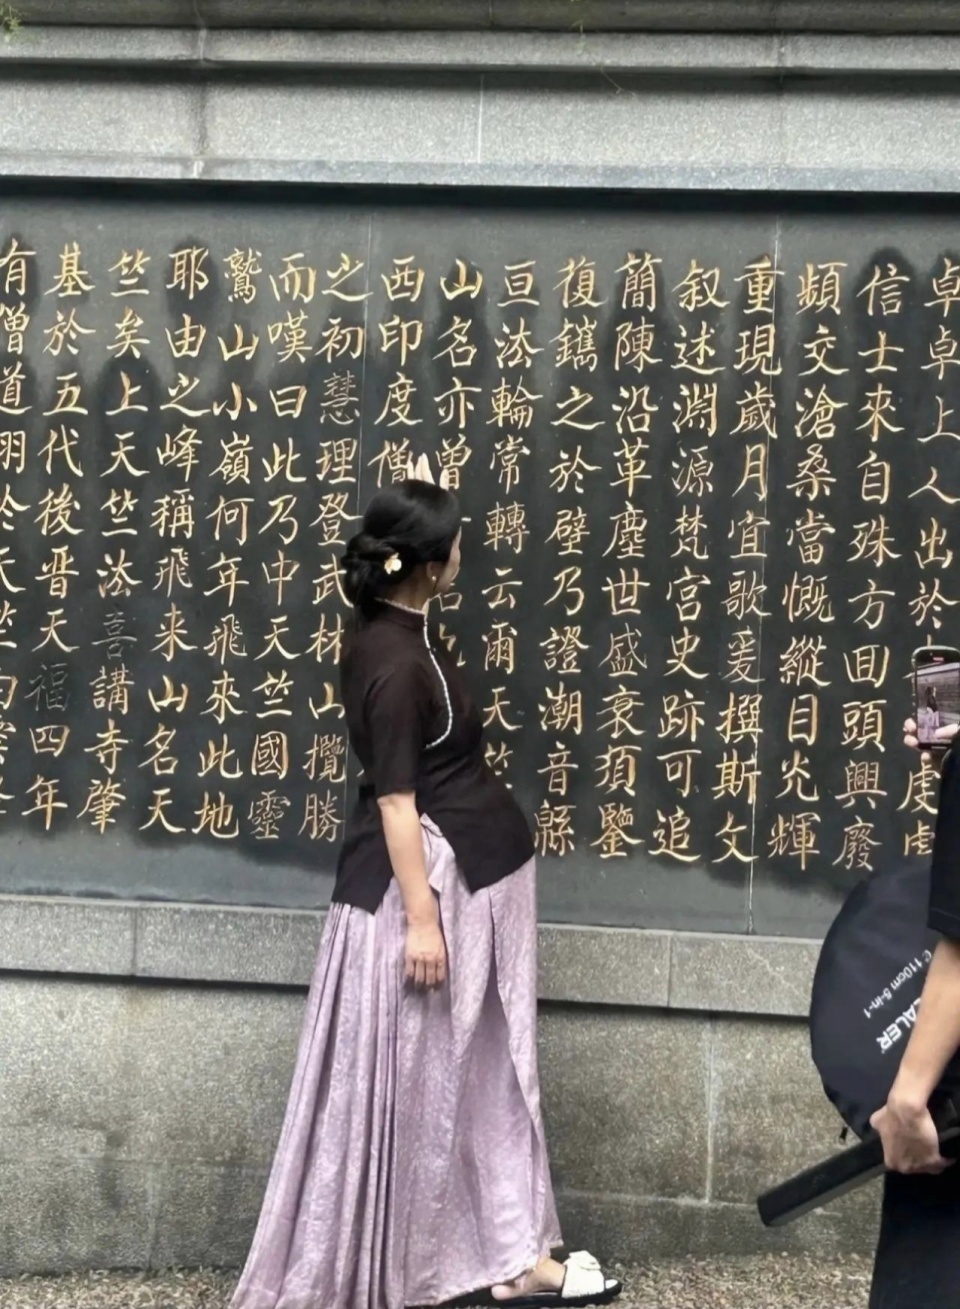 卓卓上人出於虔
信士來自殊方囬頭興廢
頻交滄桑當慨縱目光輝
重現歲月宜歌爰撰斯文
叙述淵源梵宮史跡可追
簡陳沿革塵世盛衰須鑒
復鐫之於壁乃證潮音緜
亘法輪常轉云爾天竺
山名亦曾
西印度僧
之初慧理登武林山攬勝
而嘆曰此乃中天竺國靈
鷲山小嶺何年飛來此地
耶由之峰稱飛來山名天
竺矣上天竺法喜講寺肇
基於五代後晉天福四年
有僧道翊於
110cm 5-in-1